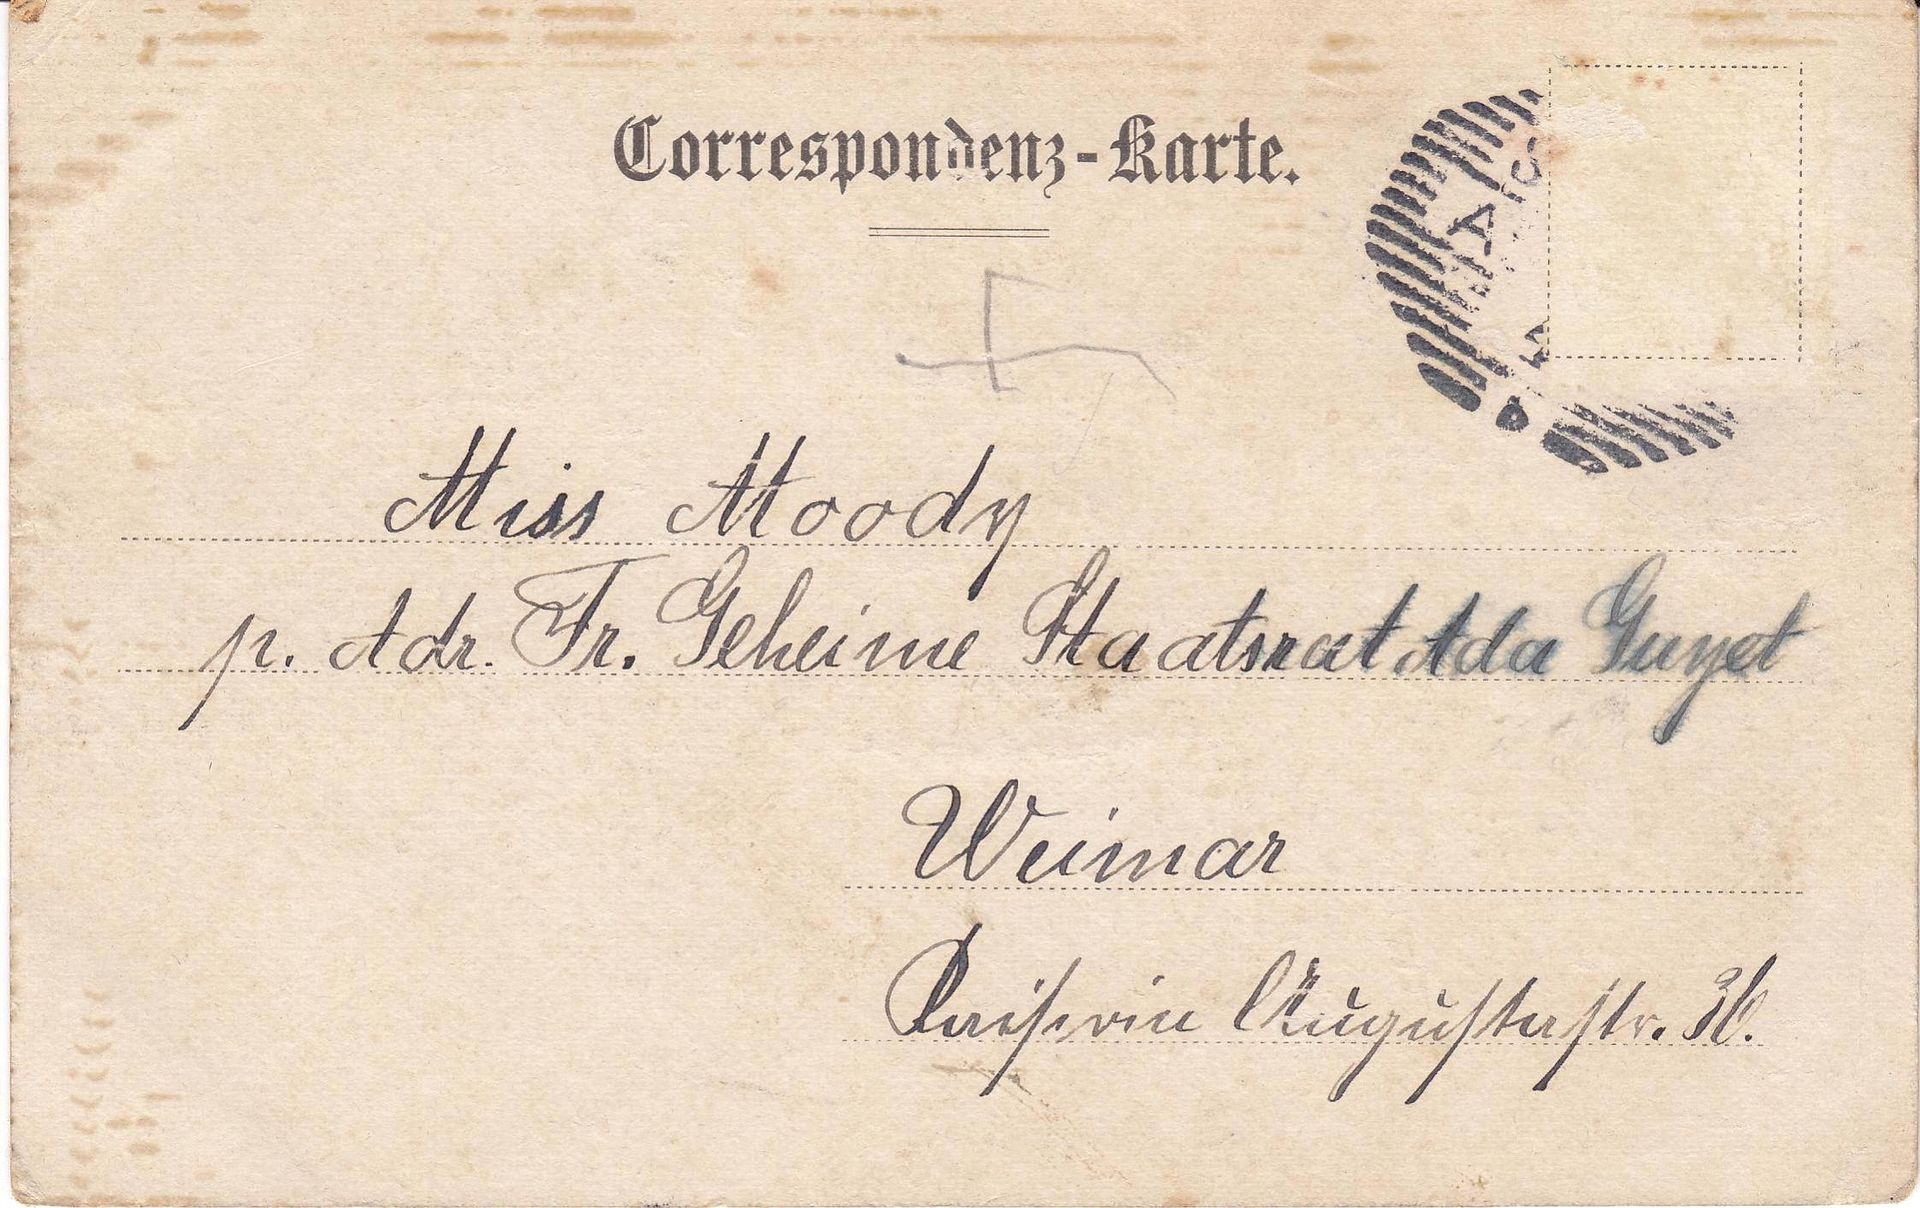 Correspondenz-Karte.
Miss Moody
p. Adr. Fr. Geheime Staatsrat Ada Guyet
Weimar
Kaiserin Augustastr.